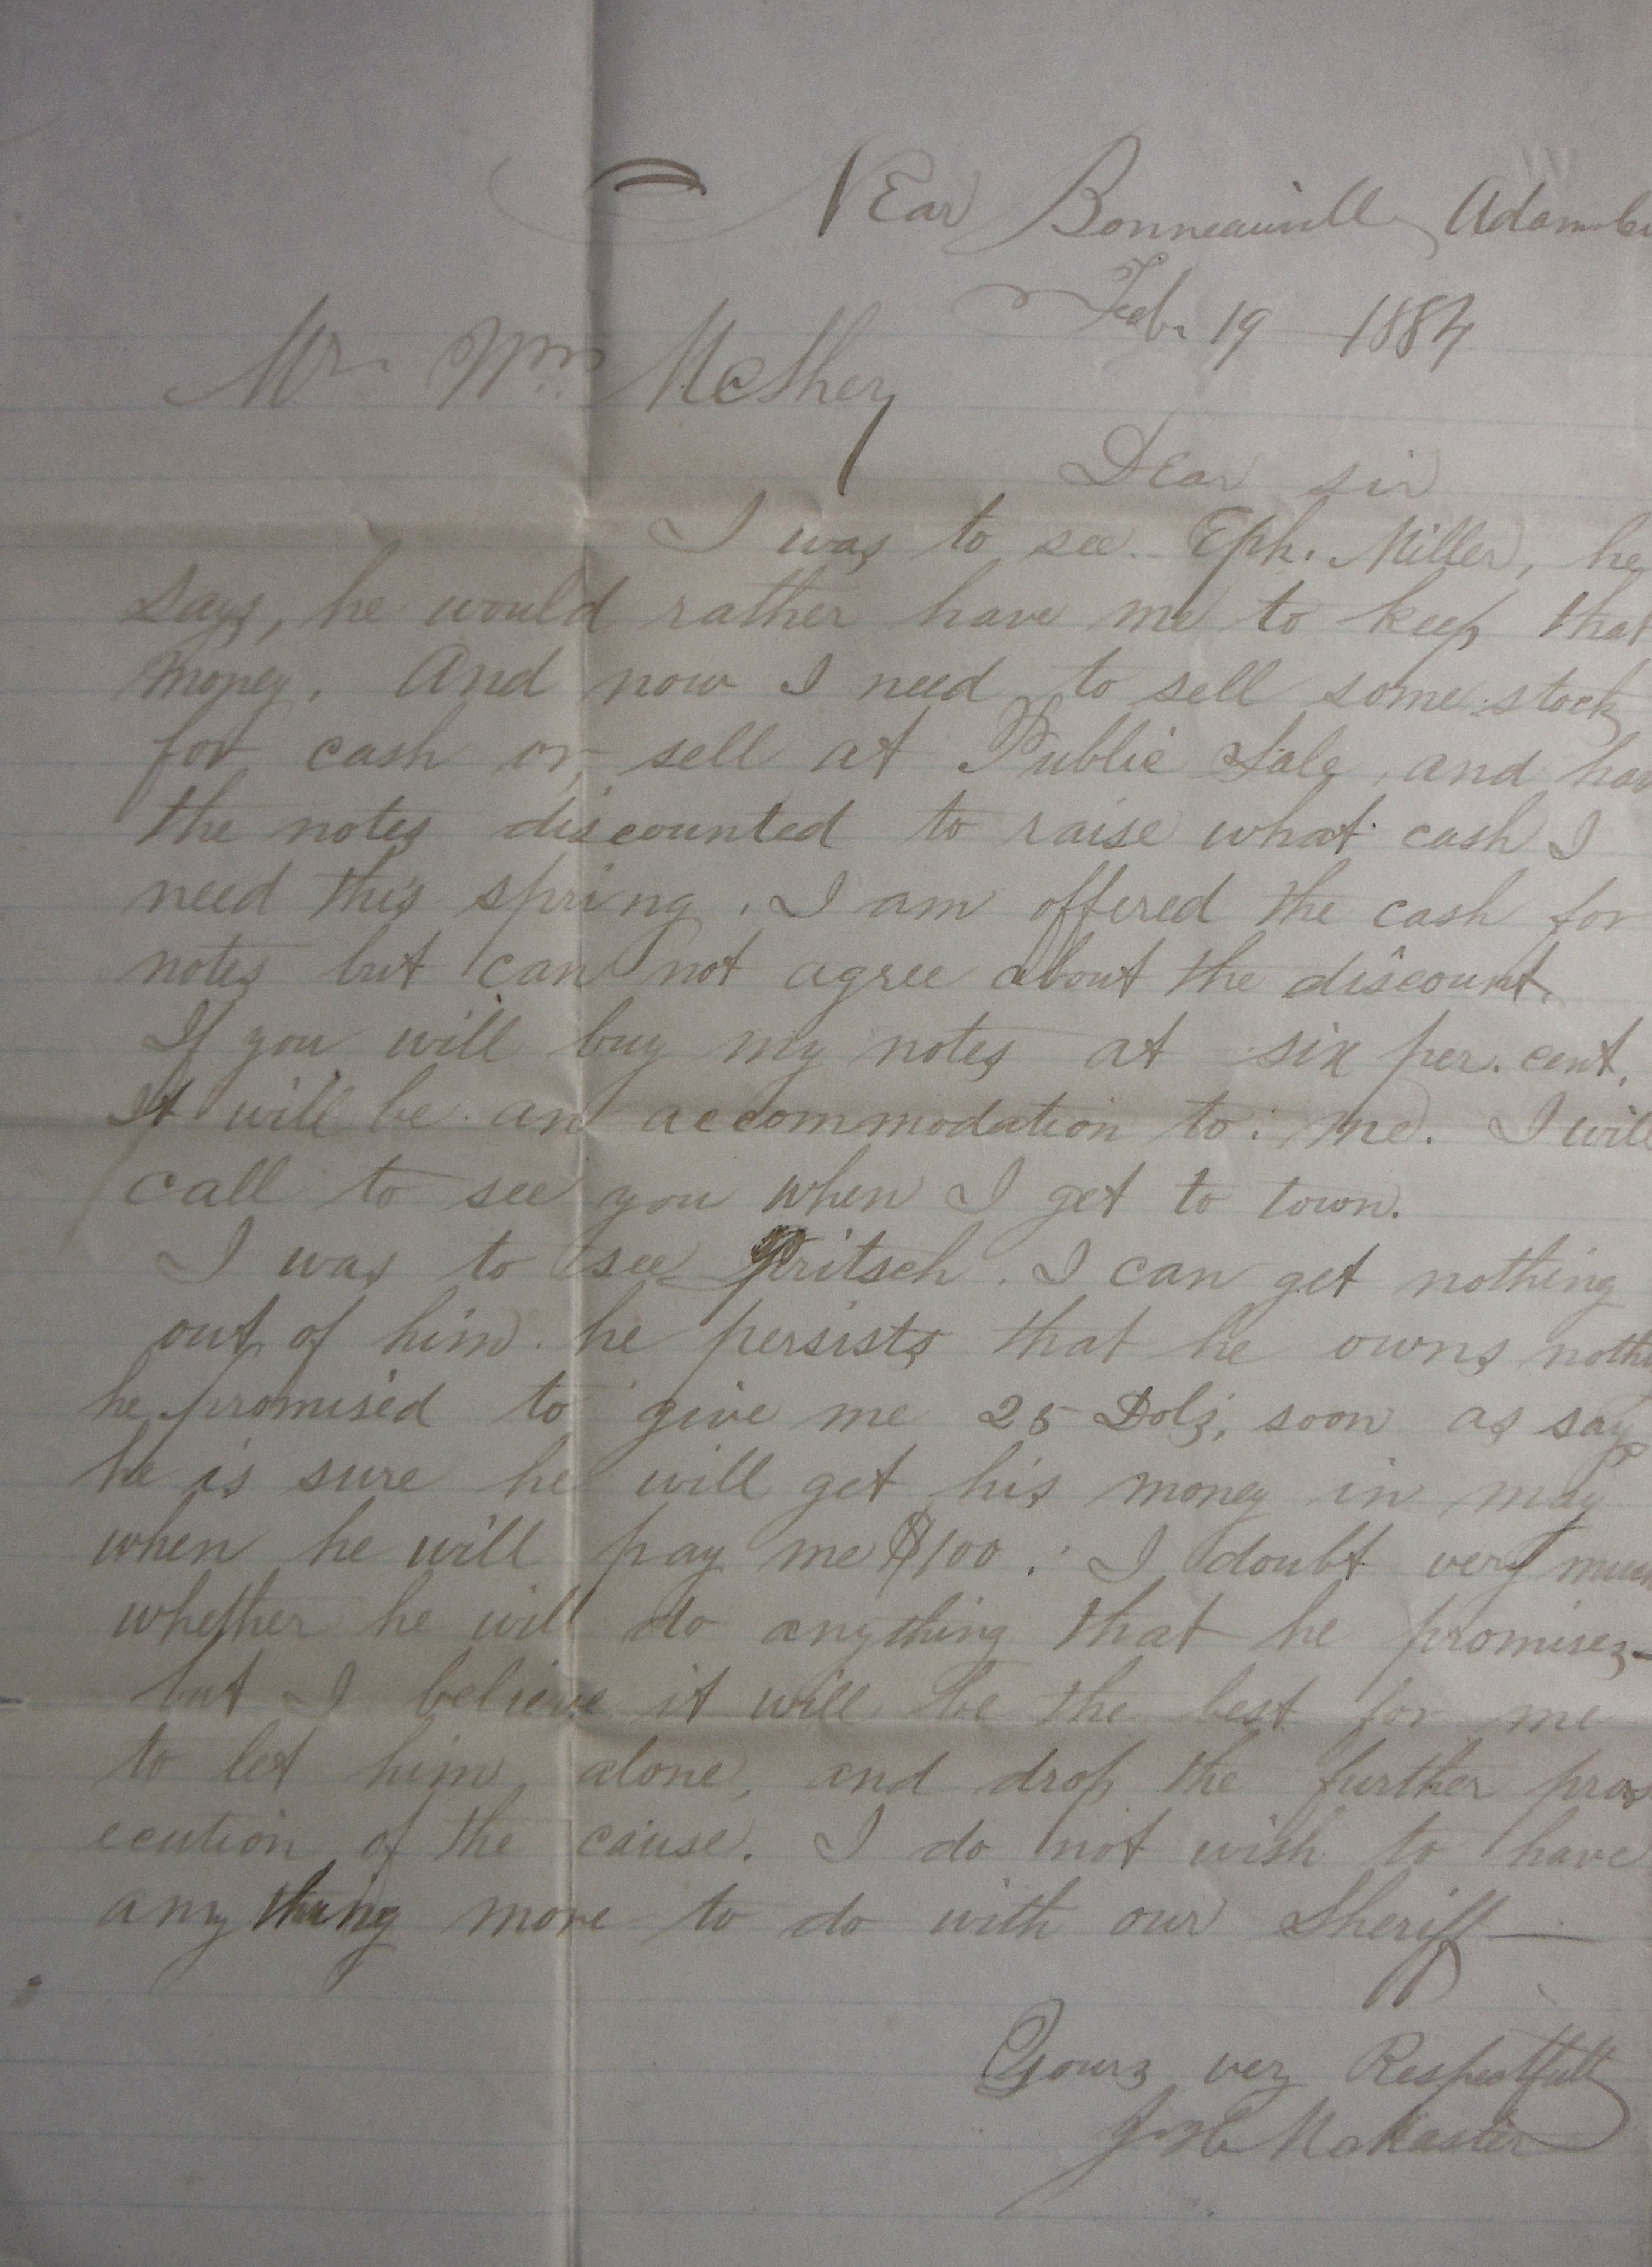 Near Bonneauvill Adams Co
Feb. 19 1884
Mr. Wm McSher
Dear sir
I was to see Eph. Miller, he
says, he would rather have me to keep that
money. And now I need to sell some stock
for cash or sell at Public Sale, and hav
the notes discounted to raise what cash I
need this spring. I am offered the cash for
notes but can not agree about the discount.
If you will buy my notes at six per. cent.
It will be an accommodation to me. I will
call to see you when I get to town.
I was to see Fritsch. I can get nothing
out of him. he persists that he owns nothi
he promised to give me 25 Dols, soon as say
he is sure he will get his money in may
when he will pay me $100. I doubt very much
whether he will do anything that he promises-
but I believe it will be the best for me
to let him alone, and drop the further pros
ecution of the cause. I do not wish to have
any thing more to do with our Sheriff—
Yours very Respectfull
McMaster